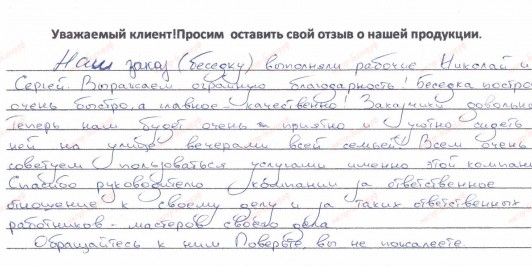 Уважаемый клиент!Просим оставить свой отзыв о нашей продукции.
Наш заказ (беседку) выполняли рабочие Николай и
Сергей. Выражаем огромную благодарность! Беседка постро
очень быстро, а главное качественно! Заказчики довольн
Теперь нам будет очень приятно и уютно сидеть
ней на улице вечерами всей семьей. Всем очень
советуем пользоваться услугами именно этой компан
Спасибо руководителю компании за ответственное
отношение к своему делу и за таких ответственных
работников - мастеров своего дела.
Обращайтесь к ним Поверьте, вы не пожалеете.